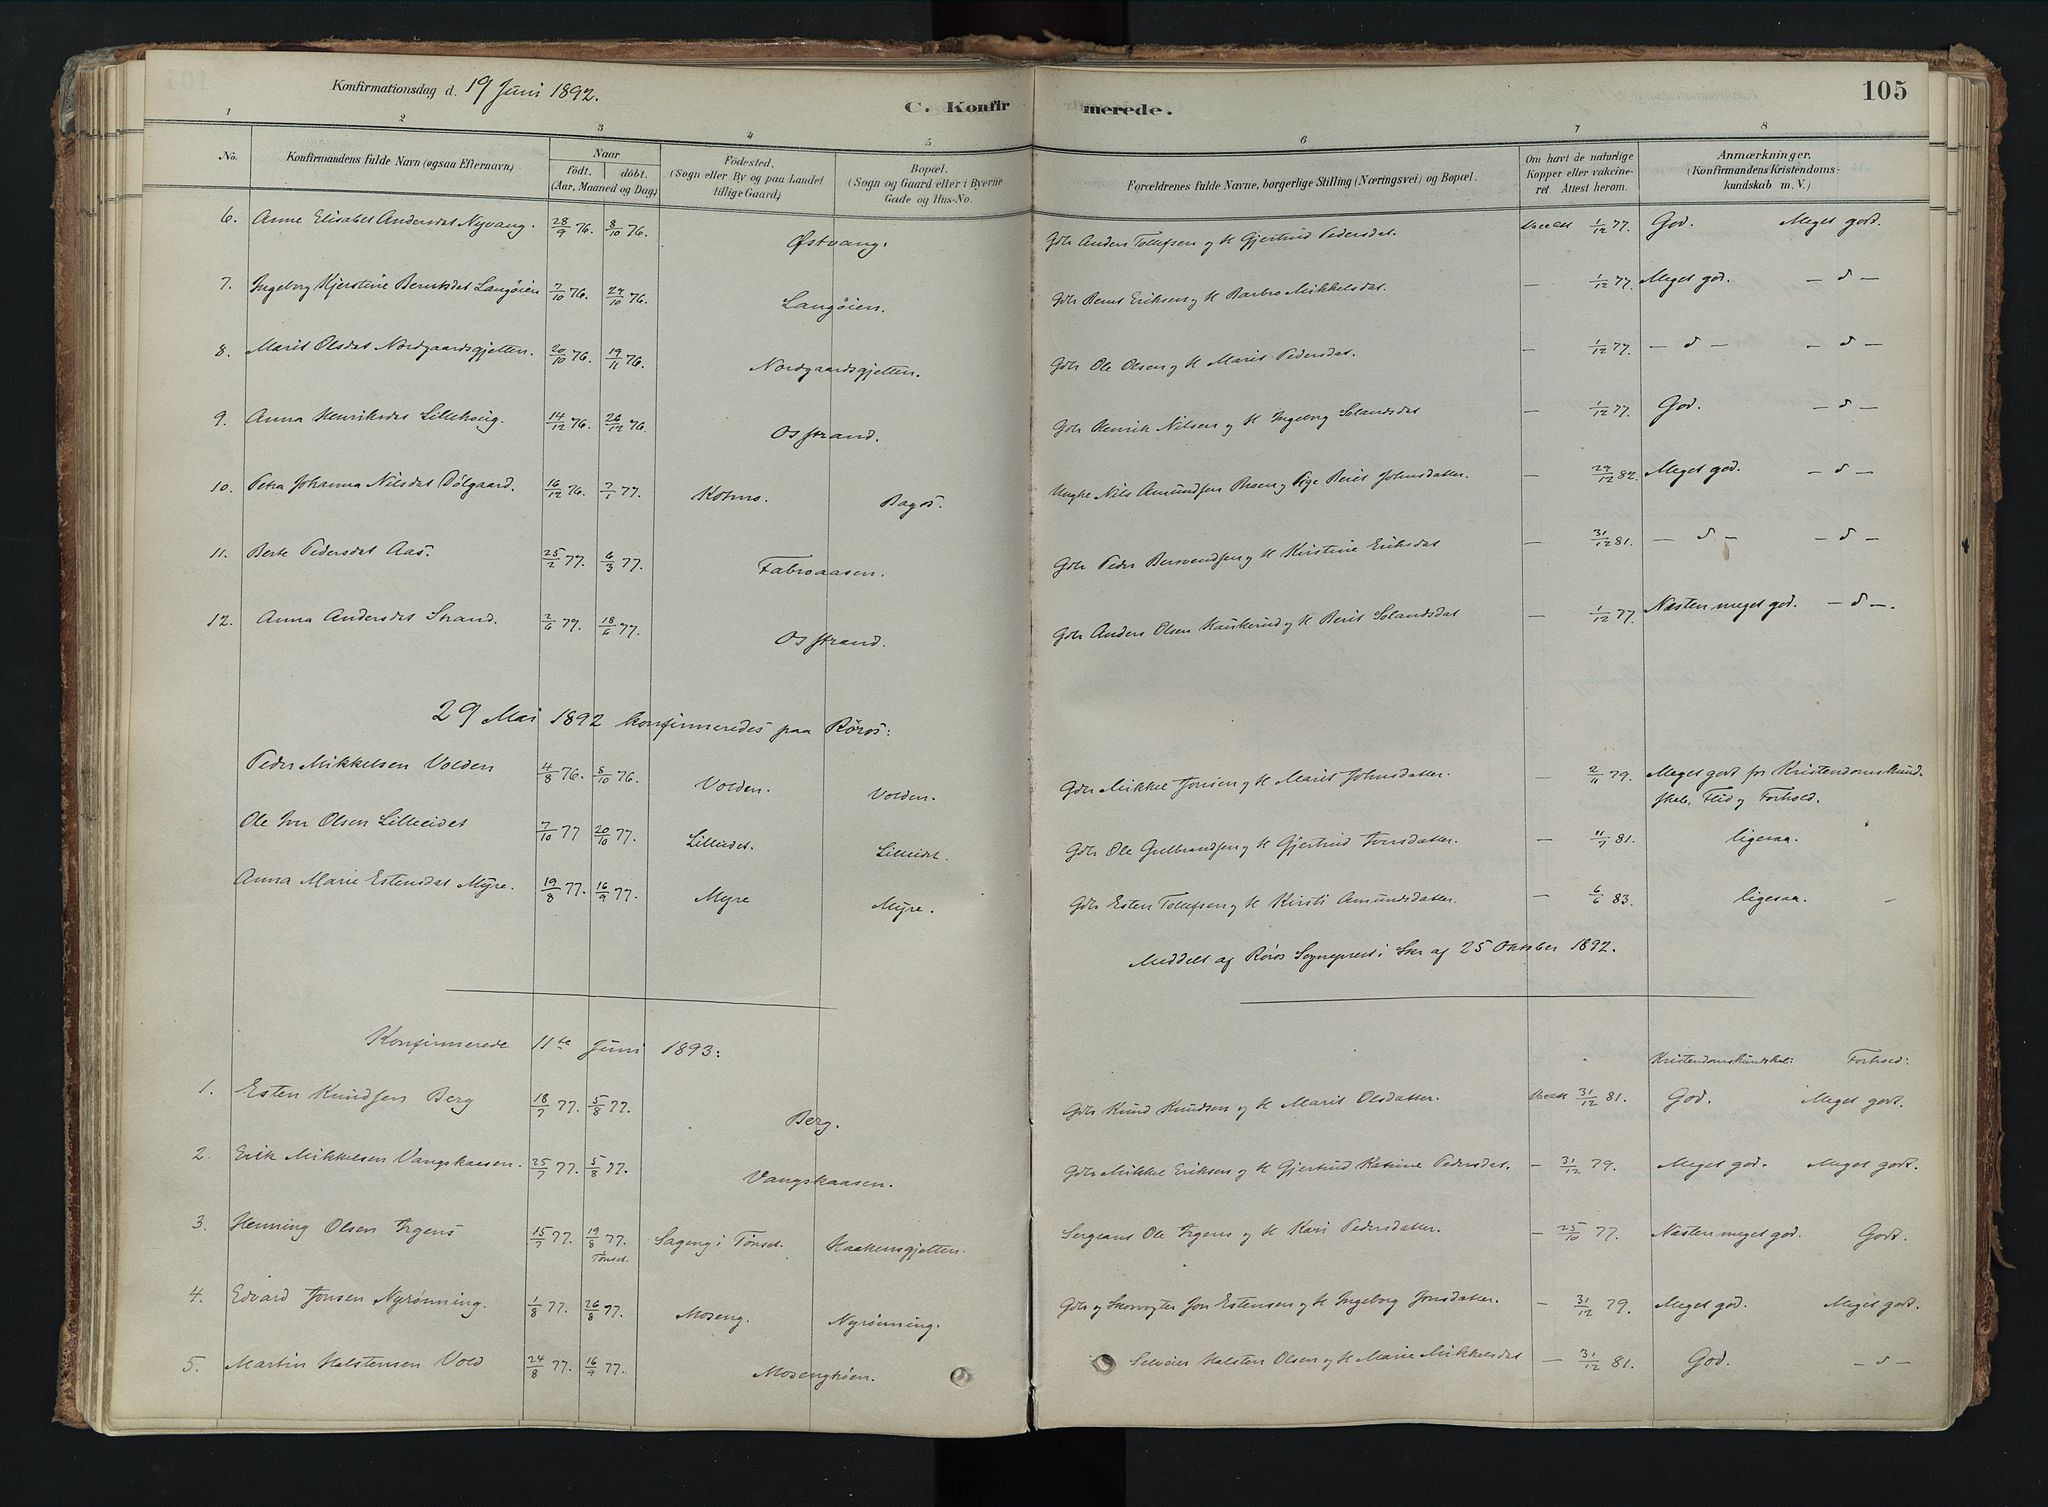 Konfirmationsdag d. 19 Juni 1892.
C. Konfirmerede.
105
1 2 3 4 5 6 7 8
No. Konfirmandens fulde Navn (ogsaa Efternavn) Naar født. døbt. (Aar, Maaned og Dag) Fødested. (Sogn eller By og paa Landet tillige Gaard) Bopæl. (Sogn og Gaard eller i Byerne Gade og Hus-No. Forældrenes fulde Navne, borgerlige Stilling (Næringsvei) og Bopæl. Om havt de naturlige Kopper eller vakcineret Attest herom. Anmærkninger. (Konfirmandens Kristendomskundskab m. V.)
6. Anne Elisabet Andersdat Nyvang. 28/9 76. 8/10 76. Østvang. Gdb Anders Tollefsen og H Gjertrud Pedersdat. Vacc att 1/12 77. God. Meget godt.
7. Ingeborg Kjerstine Berntsdat Langøien 7/10 76. 29/10 76. Langøien. Gdb Bernt Eriksen og H Barbro Mikkelsdat. — 1/12 77. Meget god. — d —
8. Marit Olsdat Nordgaardsgjetten. 20/10 76. 19/11 76. Nordgaardsgjetten. Gdb Ole Olsen og H Marit Pedersdat. — 1/12 77. — d — — d —
9. Anna Henriksdat Lillehoug. 14/12 76. 26/12 76. Osstrand. Gdb Henrik Nilsen og H Ingeborg Solandsdat — 1/12 77. God. — d —
10. Petra Johanna Nilsdat Dølgaard. 16/12 76. 7/1 77. Kotmo. Bagås. Ungke Nils Amundsen Moen og Pige Berit Johnsdatter. — 29/12 82. Meget god. — d —
11. Berte Pedersdat Aas. 25/2 77. 6/3 77. Fabroaasen. Gdb Peder Bersvendsen og H Kirstine Eriksdat — 31/12 81. — d — — d —
12. Anna Andersdat Strand. 2/6 77. 18/6 77. Osstrand. Gdb Anders Olsen Haukerud og H Berit Solandsdat — 1/12 77. Næsten meget god. — d —.
29 Mai 1892 konfirmeredes paa Røros:
Peder Mikkelsen Volden 4/8 76. 8/10 76. Volden. Volden. Gdb Mikkel Jonsen og H Marit Johnsdatter. — 2/11 79. Meget godt for Kristendomskundskab, Flid og Forhold.
Ole Iver Olsen Lilleeidet 7/10 77 20/10 77. Lilleidet. Lilleidet. Gdb Ole Gulbrandsen og H Gjertrud Iversdatter. — 11/7 81. ligesaa.
Anna Marie Estensdat Myre. 19/8 77. 16/9 77. Myre Myre. Gdb Esten Tollefsen og H Kirsti Amundsdatter. — 6/6 83. ligesaa.
Meddelt af Røros Sogneprest i Skr af 25 Oktober 1892.
Konfirmerede 11te Juni 1893:
Kristendomskundskab: Forhold:
1. Esten Knudsen Berg 18/7 77. 5/8 77. Berg. Gdb Knud Knudsen og H Marit Olsdatter. Vacatt 31/12 81. God. Meget godt.
2. Erik Mikkelsen Vangskaasen. 25/7 77. 5/8 77. Vangskaasen. Gdb Mikkel Eriksen og H Gjertrud Katrine Pedersdat. — 31/12 79. Meget god. Meget godt.
3. Henning Olsen Irgens 15/7 77. 19/8 77. Tønset. Sageng i Tønset. Haakensgjetten. Sergeant Ole Irgens og H Kari Pedersdatter. — 25/10 77. Næsten meget god. Godt.
4. Edvard Jonsen Nyrønning. 1/8 77. 26/8 77. Moseng. Nyrønning. Gdb og Skovvogter Jon Estensen og H Ingeborg Jonsdatter. — 31/12 79. Meget god. Meget godt.
5. Martin Halstensen Vold 24/8 77. 16/9 77. Mosenghøen. Selveier Halsten Olsen og H Marie Mikkelsdat — 31/12 81. God. — d —